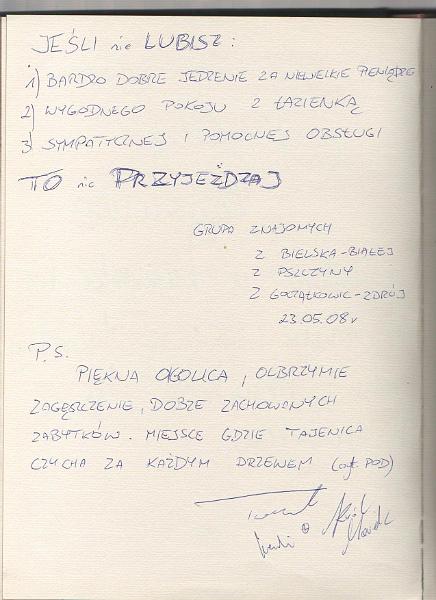 JEŚLI nie LUBISZ :
1) BARDZO DOBRE JEDZENIE ZA NIEWIELKIE PIENIĄDZE
2) WYGODNEGO POKOJU Z ŁAZIENKĄ
3) SYMPATYCZNEJ I POMOCNEJ OBSŁUGI
TO nie PRZYJEŻDZAJ
GRUPA ZNAJOMYCH
Z BIELSKA-BIAŁEJ
Z PSZCZYNY
Z GOCZAŁKOWIC-ZDRÓJ
23.05.08r
P.S.
PIĘKNA OKOLICA, OLBRZYMIE
ZAGĘSZCZENIE, DOBZE ZACHOWANYCH
ZABYTKÓW. MIEJSCE GDZIE TAJENICA
CZYCHA ZA KAŻDYM DRZEWEM (cyt. POD)